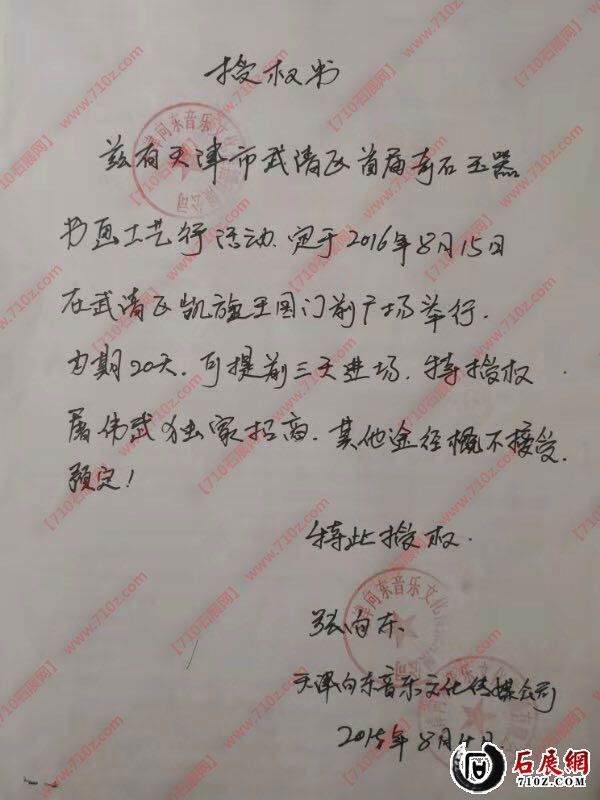 授权书
兹有天津市武清区首届奇石玉器
书画工艺行活动.定于2016年8月15日
在武清区凯旋王国门前广场举行.
为期20天.可提前三天进场.特授权
屠伟武独家招商.其他途径概不接受.
预定!
特此授权.
张向东.
天津向东音乐文化传媒公司
2015年8月4日
石展網
710Z.COM
【710石展网】 www.710z.com